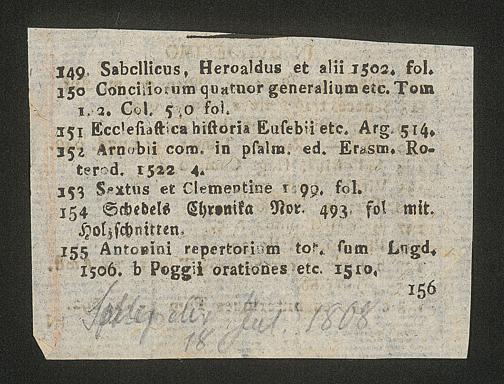 149. Sabellicus, Heroaldus et alii 1502. fol.
150 Conciliorum quatuor generalium etc. Tom
1. 2. Col. 530 fol.
151 Ecclesiastica historia Eusebii etc. Arg. 514.
152 Arnobii com. in psalm. ed. Erasm. Ro-
terod. 1522 4.
153 Sextus et Clementine 1499. fol.
154 Schedels Chronika Nor. 493. fol mit.
Holzschnitten.
155 Antonini repertorium tot. sum Lugd.
1506. b Poggii orationes etc. 1510.
156
Jul. 1808
18